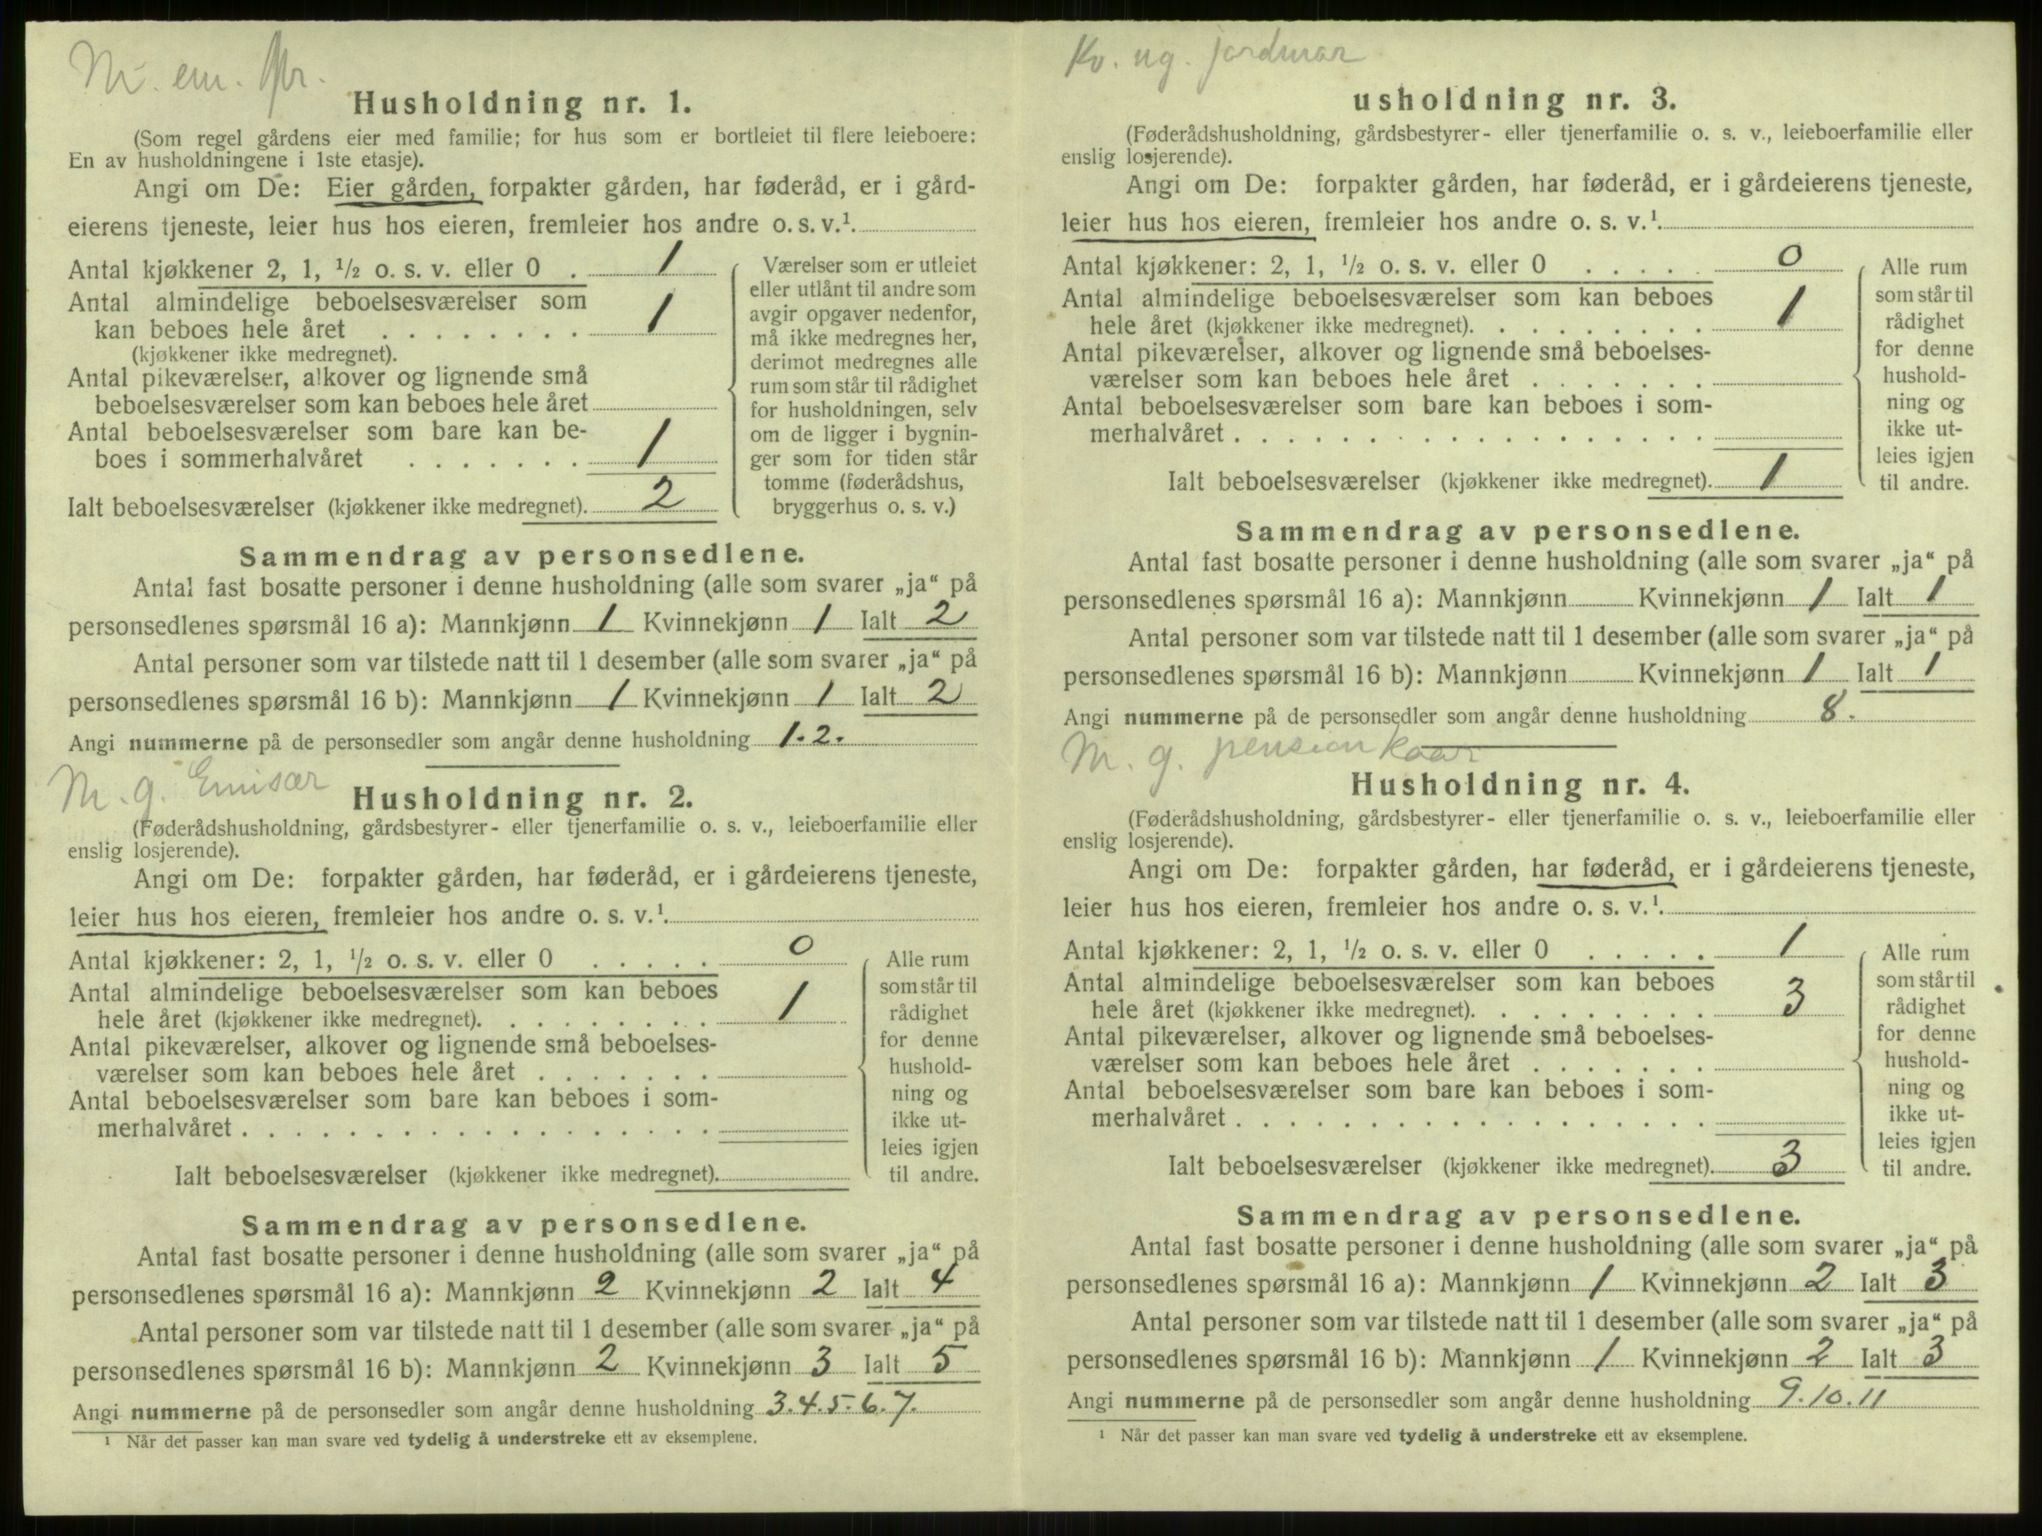 M. em. gbr.
Husholdning nr. 1.
(Som regel gårdens eier med familie; for hus som er bortleiet til flere leieboere:
En av husholdningene i 1ste etasje).
Angi om De: Eier gården, forpakter gården, har føderåd, er i gård-
eierens tjeneste, leier hus hos eieren, fremleier hos andre o. s. v.¹
Antal kjøkkener 2, 1, ½ o. s. v. eller 0 . 1
Antal almindelige beboelsesværelser som
kan beboes hele året . . . . . . . . 1
(kjøkkener ikke medregnet).
Antal pikeværelser, alkover og lignende små
beboelsesværelser som kan beboes hele året
Antal beboelsesværelser som bare kan be-
boes i sommerhalvåret . . . . . . . 1
Ialt beboelsesværelser (kjøkkener ikke medregnet). 2
Værelser som er utleiet
eller utlånt til andre som
avgir opgaver nedenfor,
må ikke medregnes her,
derimot medregnes alle
rum som står til rådighet
for husholdningen, selv
om de ligger i bygnin-
ger som for tiden står
tomme (føderådshus,
bryggerhus o. s. v.)
Sammendrag av personsedlene.
Antal fast bosatte personer i denne husholdning (alle som svarer „ja“ på
personsedlenes spørsmål 16 a): Mannkjønn 1 Kvinnekjønn 1 Ialt 2
Antal personer som var tilstede natt til 1 desember (alle som svarer „ja“ på
personsedlenes spørsmål 16 b): Mannkjønn 1 Kvinnekjønn 1 Ialt 2
Angi nummerne på de personsedler som angår denne husholdning 1.2.
M. g. Emisær
Husholdning nr. 2.
(Føderådshusholdning, gårdsbestyrer- eller tjenerfamilie o. s. v., leieboerfamilie eller
enslig losjerende).
Angi om De: forpakter gården, har føderåd, er i gårdeierens tjeneste,
leier hus hos eieren, fremleier hos andre o. s. v.¹
Antal kjøkkener: 2, 1, ½ o. s. v. eller 0 . . . . . 0
Antal almindelige beboelsesværelser som kan beboes
hele året (kjøkkener ikke medregnet). . . . . . . . . 1
Antal pikeværelser, alkover og lignende små beboelses-
værelser som kan beboes hele året . . . . . . .
Antal beboelsesværelser som bare kan beboes i som-
merhalvåret . . . . . . . . . . . . . . . . . .
Ialt beboelsesværelser (kjøkkener ikke medregnet).
Alle rum
som står til
rådighet
for denne
hushold-
ning og
ikke ut-
leies igjen
til andre.
Sammendrag av personsedlene.
Antal fast bosatte personer i denne husholdning (alle som svarer „ja“ på
personsedlenes spørsmål 16 a): Mannkjønn 2 Kvinnekjønn 2 Ialt 4
Antal personer som var tilstede natt til 1 desember (alle som svarer „ja“ på
personsedlenes spørsmål 16 b): Mannkjønn 2 Kvinnekjønn 3 Ialt 5
Angi nummerne på de personsedler som angår denne husholdning 3.4.5.6.7.
¹ Når det passer kan man svare ved tydelig å understreke ett av eksemplene.
Kv. ug. jordmor
usholdning nr. 3.
(Føderådshusholdning, gårdsbestyrer- eller tjenerfamilie o. s. v., leieboerfamilie eller
enslig losjerende).
Angi om De: forpakter gården, har føderåd, er i gårdeierens tjeneste,
leier hus hos eieren, fremleier hos andre o. s. v.¹
Antal kjøkkener: 2, 1, ½ o. s. v. eller 0 . . . . . 0
Antal almindelige beboelsesværelser som kan beboes
hele året (kjøkkener ikke medregnet). . . . . . . . . 1
Antal pikeværelser, alkover og lignende små beboelses-
værelser som kan beboes hele året . . . . . . .
Antal beboelsesværelser som bare kan beboes i som-
merhalvåret . . . . . . . . . . . . . . . . . .
Ialt beboelsesværelser (kjøkkener ikke medregnet). 1
Alle rum
som står til
rådighet
for denne
hushold-
ning og
ikke ut-
leies igjen
til andre.
Sammendrag av personsedlene.
Antal fast bosatte personer i denne husholdning (alle som svarer „ja“ på
personsedlenes spørsmål 16 a): Mannkjønn Kvinnekjønn 1 Ialt 1
Antal personer som var tilstede natt til 1 desember (alle som svarer „ja“ på
personsedlenes spørsmål 16 b): Mannkjønn Kvinnekjønn 1 Ialt 1
Angi nummerne på de personsedler som angår denne husholdning 8.
M. g. pension kaar
Husholdning nr. 4.
(Føderådshusholdning, gårdsbestyrer- eller tjenerfamilie o. s. v., leieboerfamilie eller
enslig losjerende).
Angi om De: forpakter gården, har føderåd, er i gårdeierens tjeneste,
leier hus hos eieren, fremleier hos andre o. s. v.¹
Antal kjøkkener: 2, 1, ½ o. s. v. eller 0 . . . . . 1
Antal almindelige beboelsesværelser som kan beboes
hele året (kjøkkener ikke medregnet). . . . . . . . . 3
Antal pikeværelser, alkover og lignende små beboelses-
værelser som kan beboes hele året . . . . . . .
Antal beboelsesværelser som bare kan beboes i som-
merhalvåret . . . . . . . . . . . . . . . . . .
Ialt beboelsesværelser (kjøkkener ikke medregnet). 3
Alle rum
som står til
rådighet
for denne
hushold-
ning og
ikke ut-
leies igjen
til andre.
Sammendrag av personsedlene.
Antal fast bosatte personer i denne husholdning (alle som svarer „ja“ på
personsedlenes spørsmål 16 a): Mannkjønn 1 Kvinnekjønn 2 Ialt 3
Antal personer som var tilstede natt til 1 desember (alle som svarer „ja“ på
personsedlenes spørsmål 16 b): Mannkjønn 1 Kvinnekjønn 2 Ialt 3
Angi nummerne på de personsedler som angår denne husholdning 9.10.11
¹ Når det passer kan man svare ved tydelig å understreke ett av eksemplene.